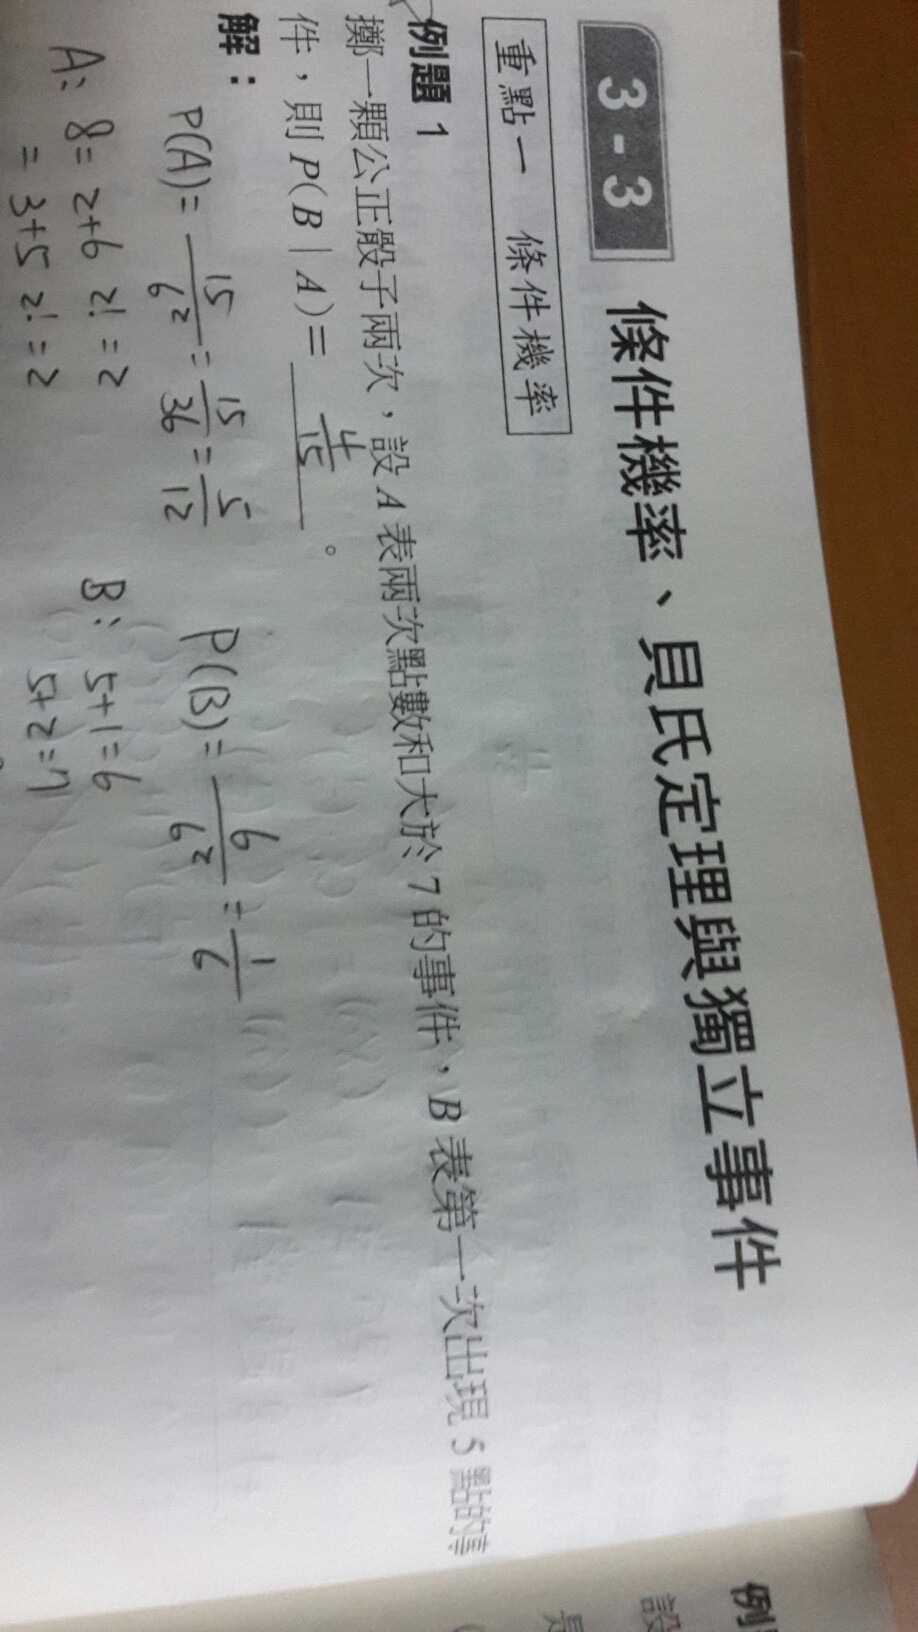 3-3 條件機率、貝氏定理與獨立事件
重點一 條件機率
例題 1
擲一顆公正骰子兩次，設 A 表兩次點數和大於 7 的事件，B 表第一次出現 5 點的事
件，則 P(B | A) = 4/15 。
解：
P(A) = 15/6² = 15/36 = 5/12 P(B) = 6/6² = 1/6
A: 8 = 2+6 2! = 2 B: 5+1=6
= 3+5 2! = 2 5+2=7
例
設